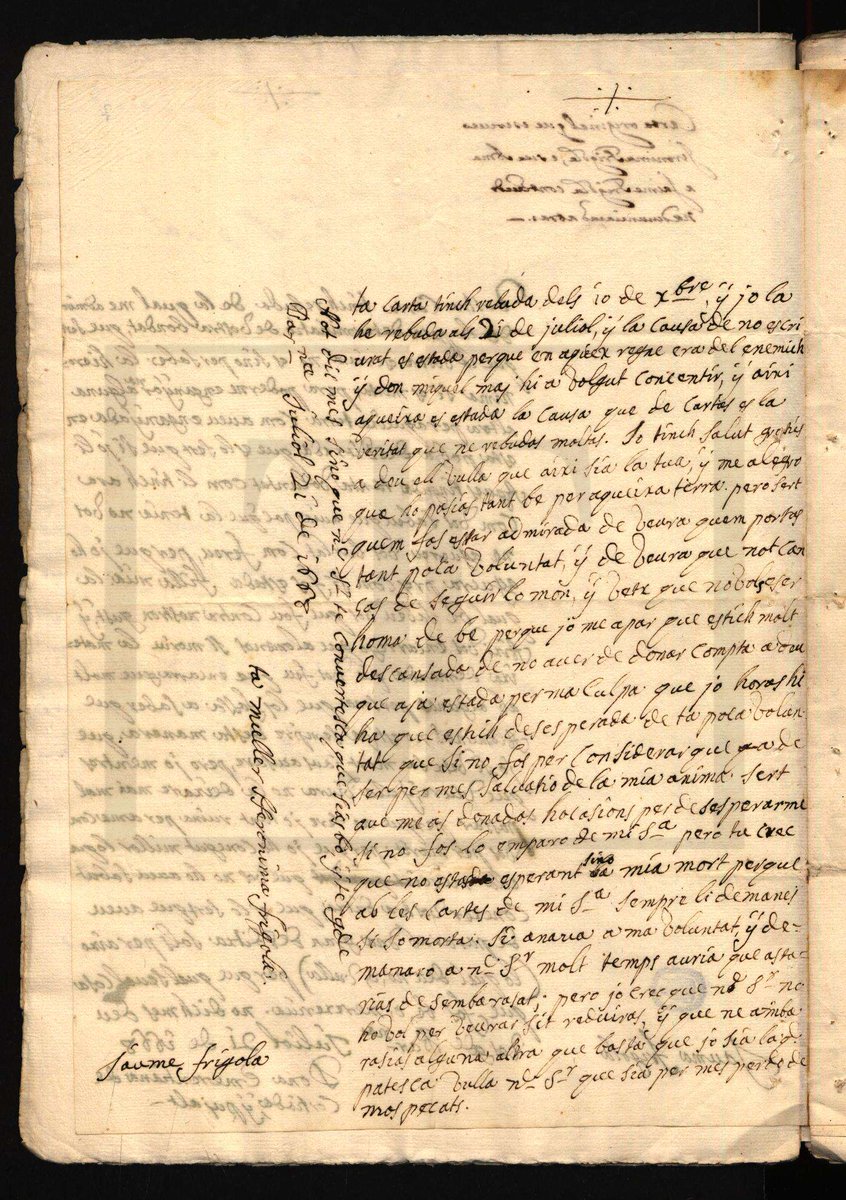 ta carta tinch rebuda dels 10 de xbre, y jo la
he rebuda als 21 de juliol, y la causa de no escri
urat es estada perque en aqueix regne era del enemich
y don miquel may hi a volgut concentir, y aixi
aqueixa es estada la causa que de cartas es la
veritat que ne rebudas moltas. Jo tinch salut
a deu ell vulla que aixi sia la tua, y me alegro
que ho pasias tant be per aqueixa terra. pero sert
quem fas estar admirada de veura quem portes
tant pola voluntat, y de veura que not can
sas de seguir lo mon, y vetx que no vols ser
home de be perque jo me apar que estich molt
descansada de no aver de donar compta a deu
que aja estada per ma culpa que jo horas hi
ha que estich desesperada de ta pola volun
tat que si no fos per considerar que a de
ser per mes salvatio de la mia anima. sert
que me as donadas hocasions per desesperarme
si no fos lo emparo de mi Sª pero tu crec
que no estas esperant sino la mia mort perque
ab les cartes de mi Sª sempre li demanes
si so morta. si anava a ma voluntat, y de-
manaro a nº Sr molt temps auria que esta
rias desembarasat; pero jo crec que nº Sr no
ho vol per veurar sit reduiras, y que ne
rasias alguna altra que basta que jo sia la q
patesca vulla nº Sr que sia per mes perdo de
mos pecats.
Not dic mes sino que nº Sr te convertesca que sias bo y te gde
Barna Juliol 21 de 1662
ta muller Hieronima frigola.
Jaume frigola